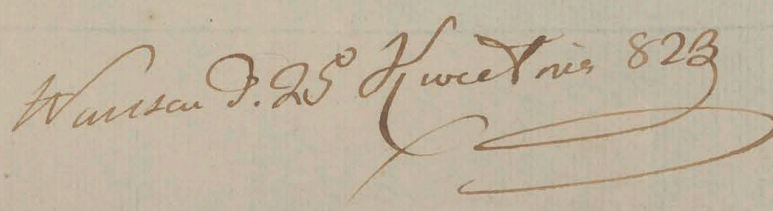 Warsaw D. 25º Kwietnia 823